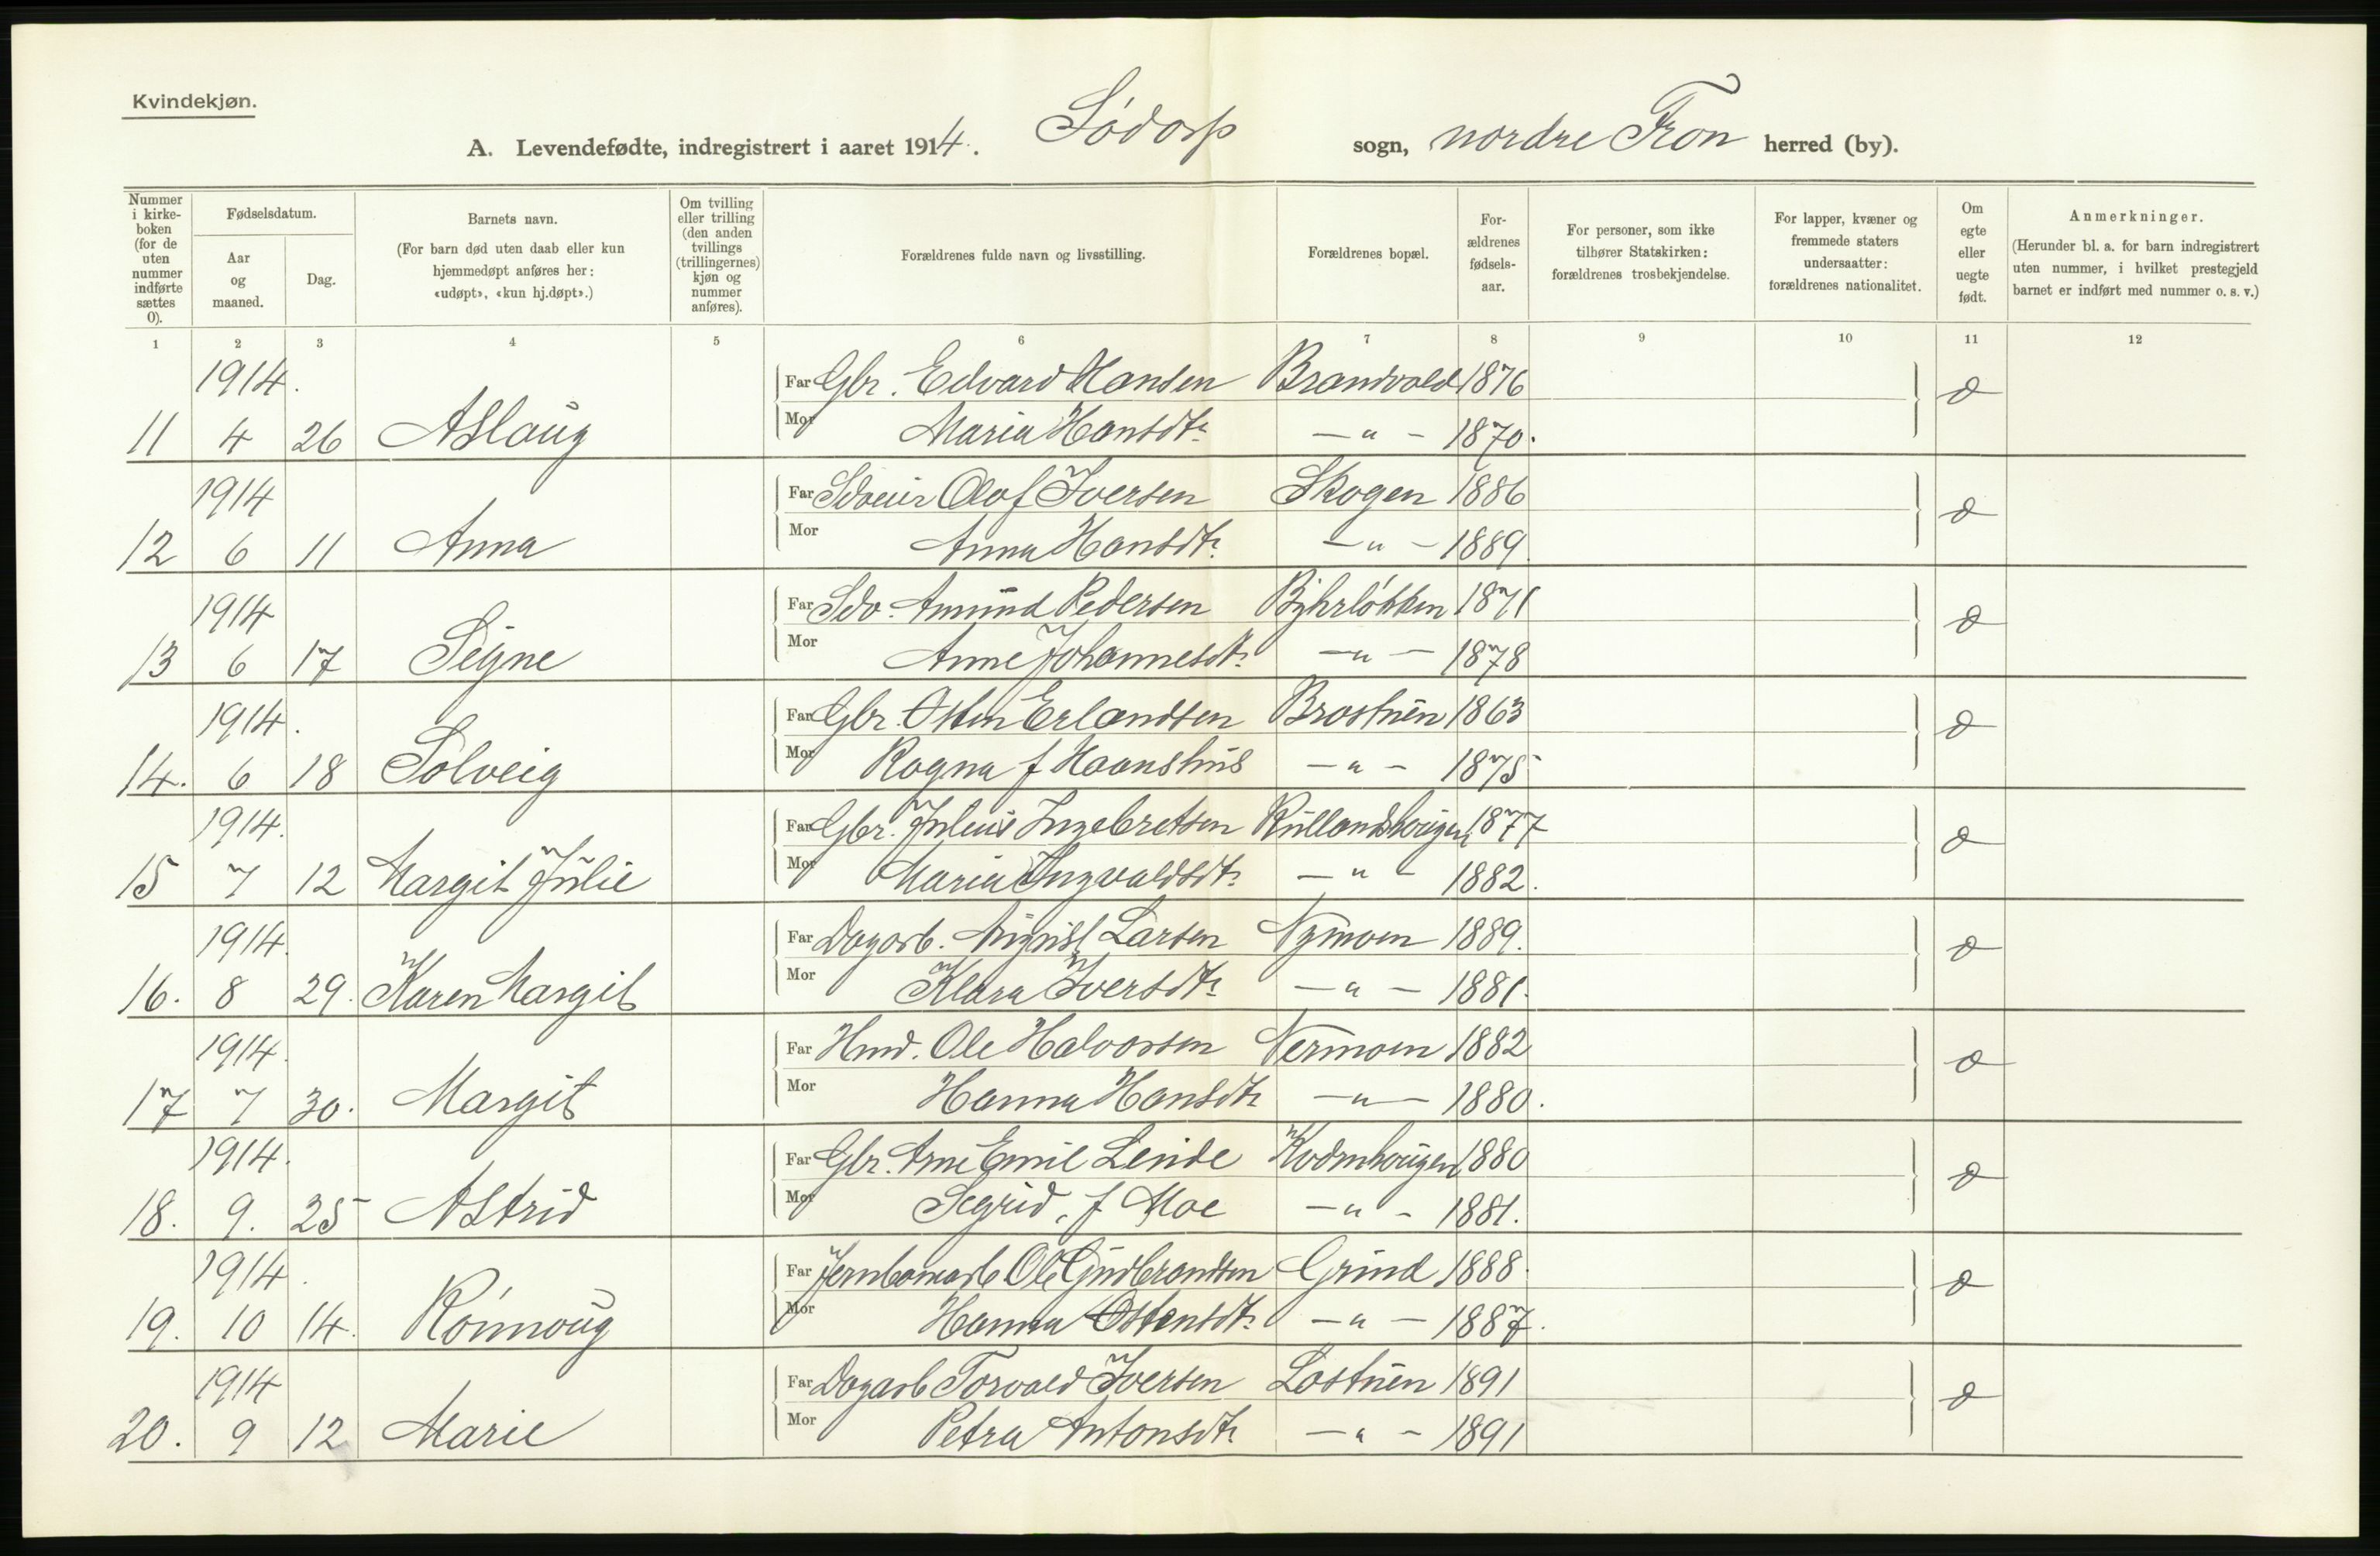 Kvindekjøn.
A. Levendefødte, indregistrert i aaret 1914. Sødorp sogn, nordre Fron herred (by).
Nummer i kirke-boken (for de uten nummer indførte sættes 0).
Fødselsdatum.
Aar og maaned.
Dag.
Barnets navn.
(For barn død uten daab eller kun hjemmedøpt anføres her: «udøpt», «kun hj.døpt».)
Om tvilling eller trilling (den anden tvillings (trillingernes) kjøn og nummer anføres).
Forældrenes fulde navn og livsstilling.
Forældrenes bopæl.
For-ældrenes fødsels-aar.
For personer, som ikke tilhører Statskirken: forældrenes trosbekjendelse.
For lapper, kvæner og fremmede staters undersaatter: forældrenes nationalitet.
Om egte eller uegte født.
Anmerkninger.
(Herunder bl. a. for barn indregistrert uten nummer, i hvilket prestegjeld barnet er indført med nummer o. s. v.)
1 2 3 4 5 6 7 8 9 10 11 12
1914. Far Gbr. Edvard Hansen Brandvold 1876
11 4 26 Aslaug Mor Maria Hansdtr. —"— 1870.
1914 Far Olof Iversen Skogen 1886
12 6 11 Anna Mor Anna Hansdtr. —"— 1889.
1914 Far Selv. Amund Pedersen 1871
13 6 17 Signe Mor Anne Johannesdtr. —"— 1878
1914. Far Gbr. Østen Erlandsen Brostuen 1863
14. 6 18 Solveig Mor Ragna f Haanshus —"— 1875
1914. Far Gbr. Julius Ingebretsen Rullandshaugen 1877
15 7 12 Margit Julie Mor Maria Ingvaldsdtr. —"— 1882.
1914. Far Dagarb. August Larsen Nymoen 1889.
16. 8 29. Karen Margit Mor Klara Iversdtr. —"— 1881.
1914. Far Hmd. Ole Halvorsen Vermoen 1882
17 7 30. Margit Mor Hanna Hansdtr —"— 1880.
1914. Far Gbr. Arne Emil Leride Kvernhaugen 1880
18. 9. 25 Astrid Mor Sigrid, f Moe —"— 1881.
1914. Far Jernbanearb Ole Gudbrandsen Grind 1888.
19. 10 14. Rønnoug Mor Hanna Østensdtr. —"— 1887.
1914 Far Dagarb Torvald Iversen Lostuen 1891
20. 9 12 Marie Mor Petra Antonsdtr. —"— 1891